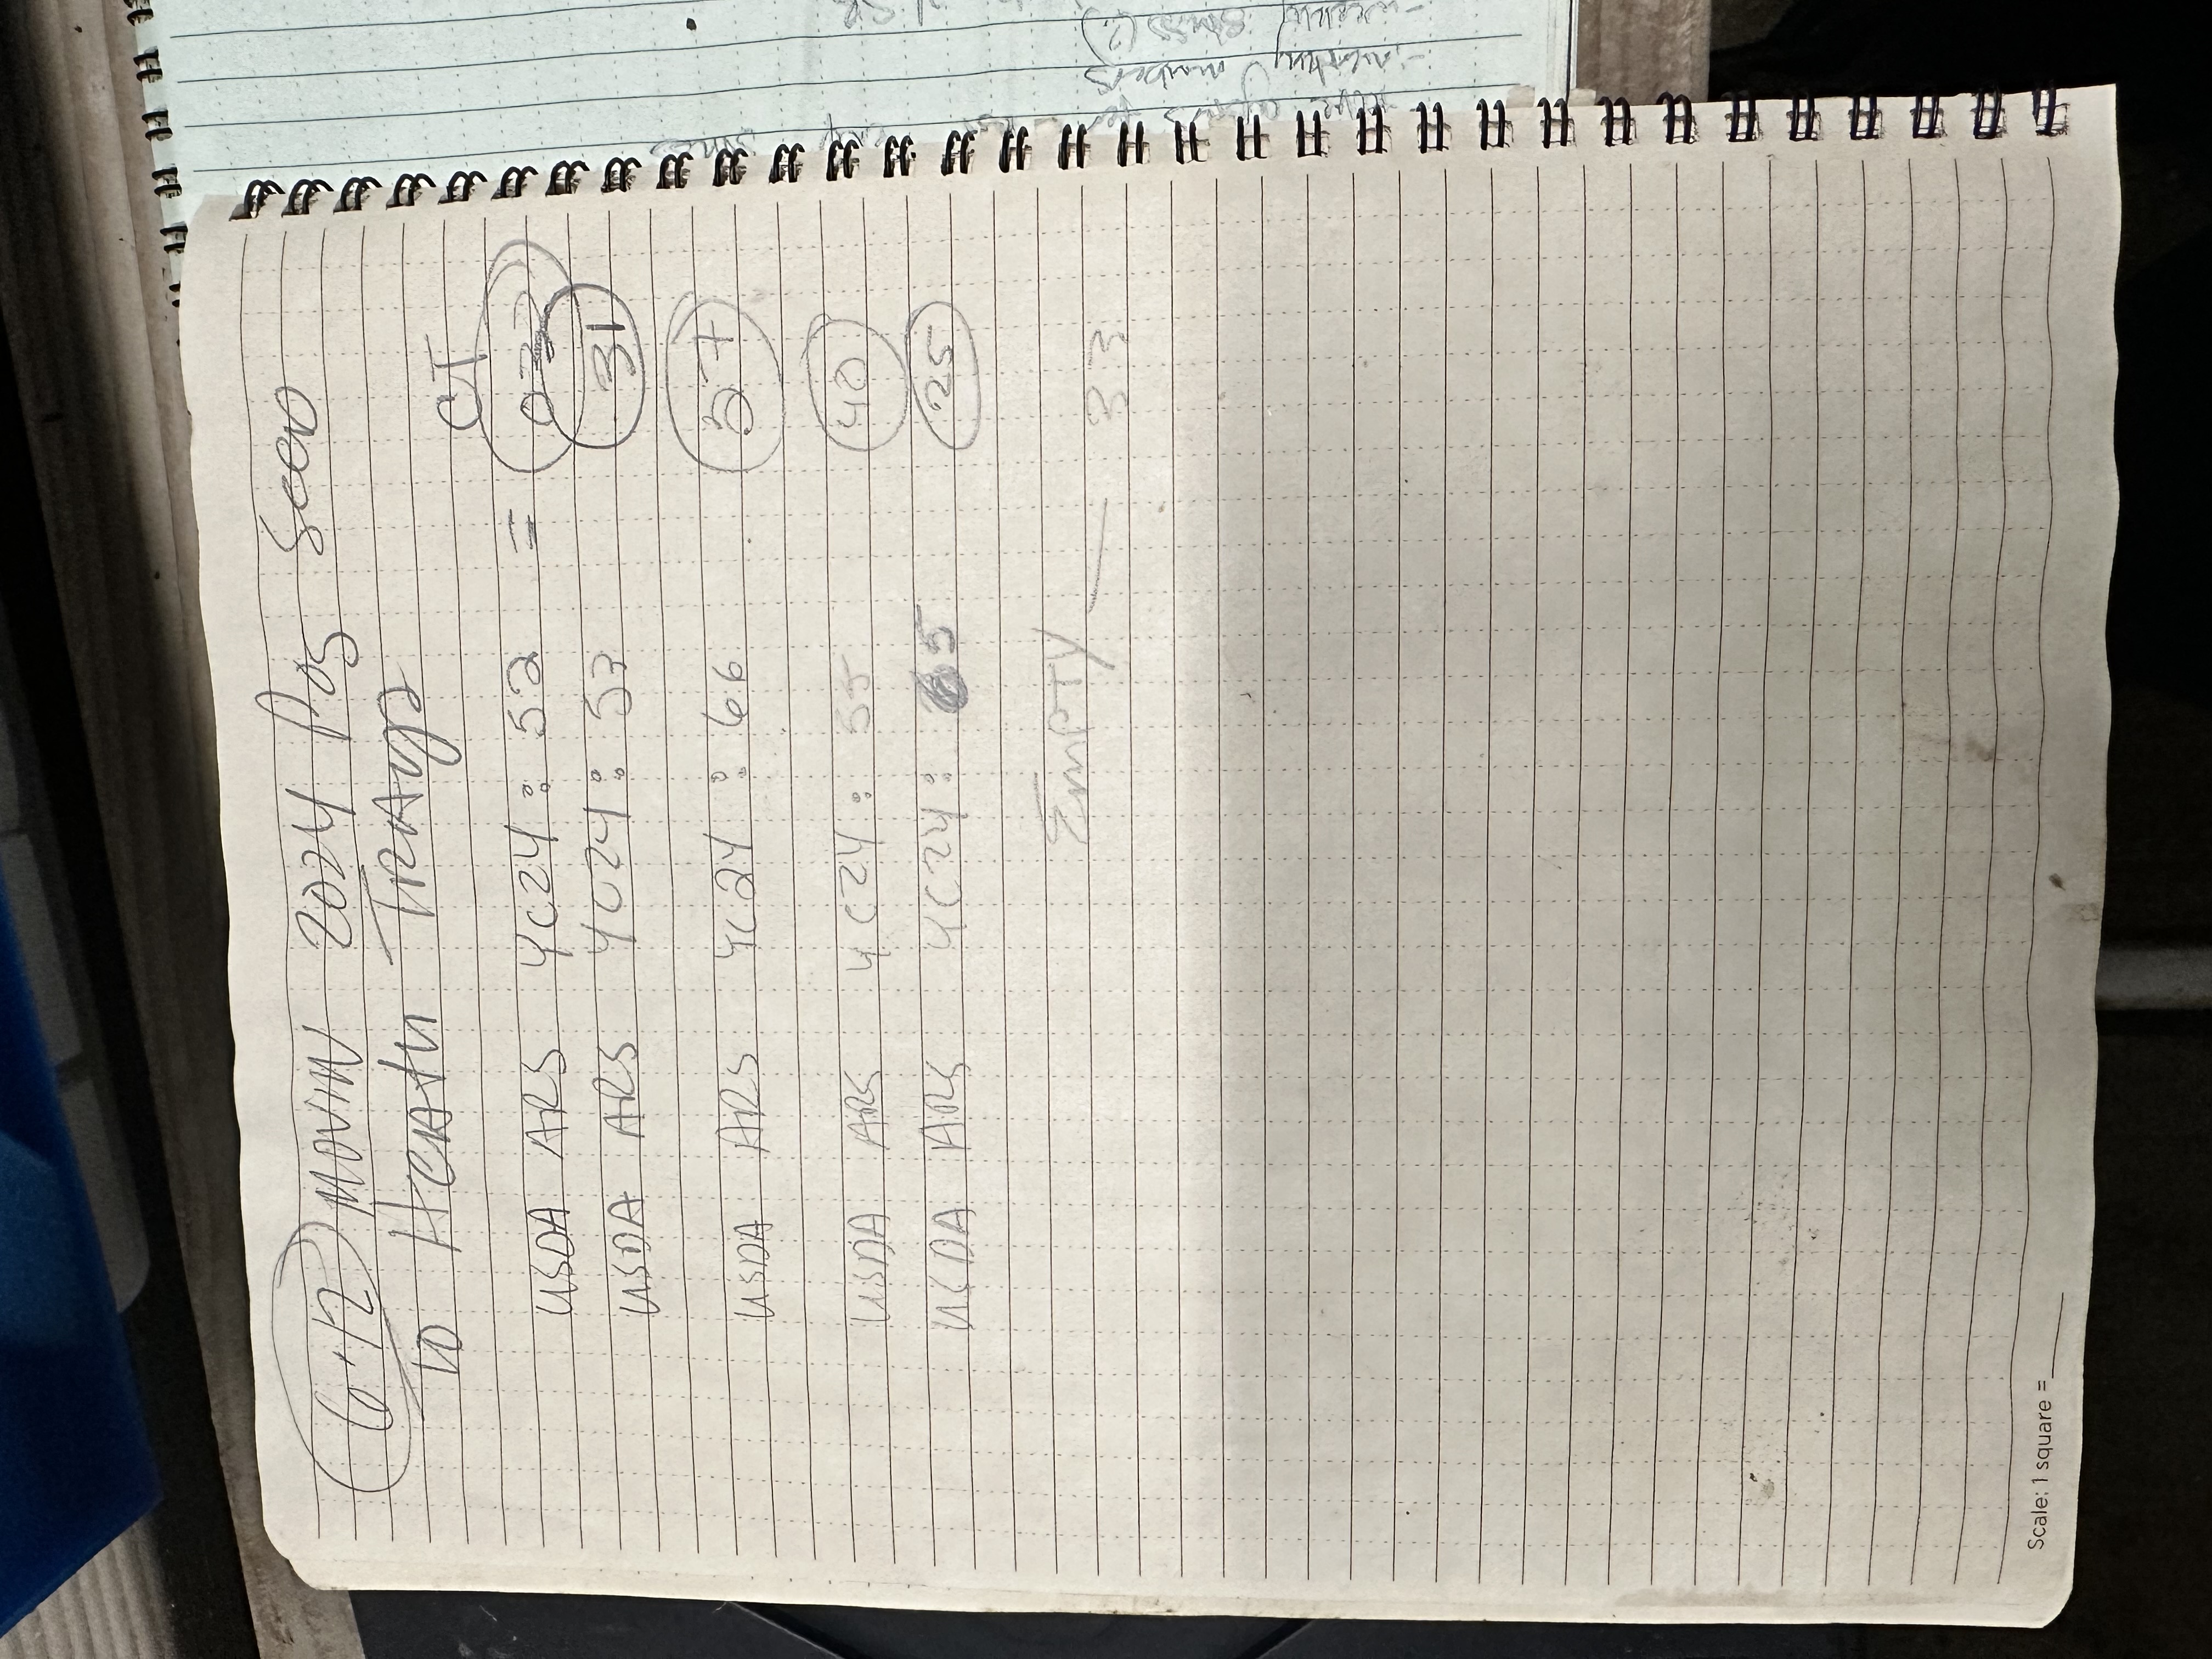 6.12 MOVIN 2024 Pos Seed
to Heath Trays
CT
USDA ARS YC24 : 52 = 032
USDA ARS YC24 : 53 31
USDA ARS YC24 : 66 57
USDA ARS YC24 : 55 40
USDA ARS YC24 : 65 25
Empty — 33
Scale: 1 square = ______
numbers
weekly